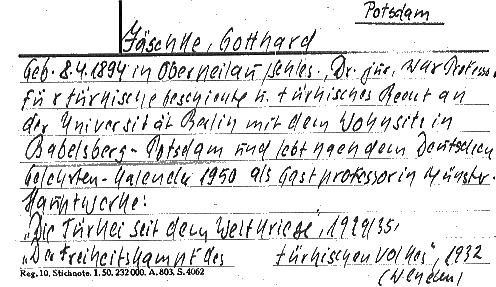 Potsdam
Jäschke, Gotthard
Geb. 8.4.1894 in Oberneilau/Schles., Dr. jur., war Professor
für türkische Geschichte u. türkisches Recht an
der Universität Berlin mit dem Wohnsitz in
Babelsberg-Potsdam und lebt nach dem Deutschen
Gelehrten-Kalender 1950 als Gastprofessor in Münster.
Hauptwerke:
"Die Türkei seit dem Weltkriege, 1929/35,
"Der Freiheitskampf des türkischen Volkes", 1932
Reg. 10, Stichnote. 1. 50. 232000. A. 803. S. 4062